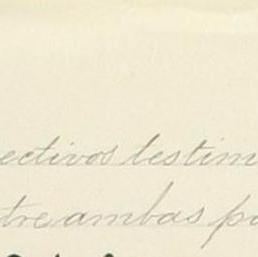 ectivos testim
tre ambas pa